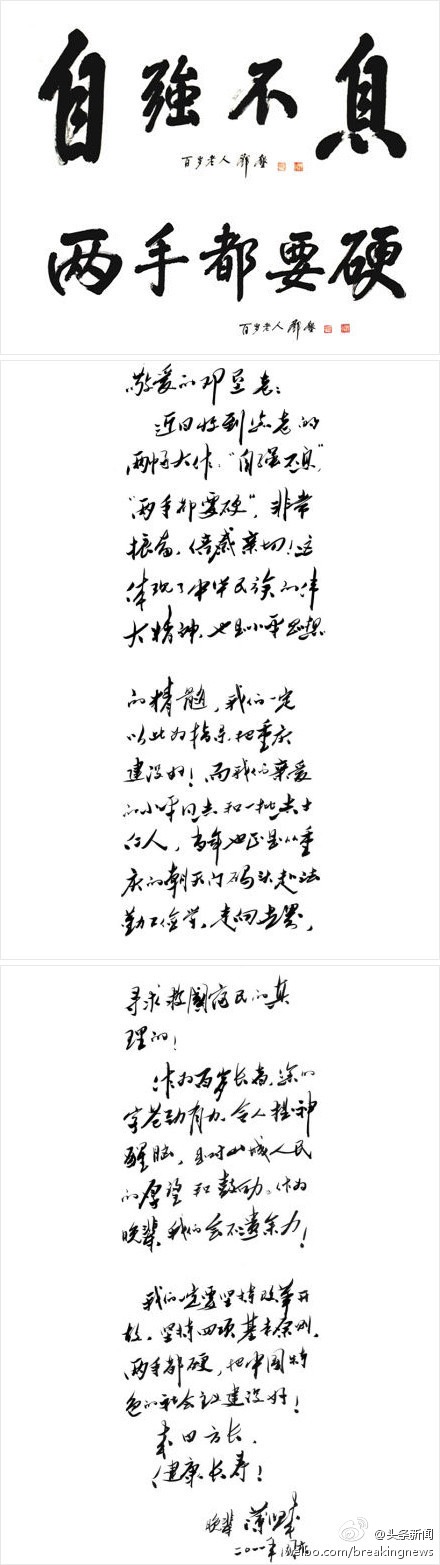 自強不息
百岁老人 鄧垦
两手都要硬
百岁老人 鄧垦
敬爱的邓垦老:
近日收到您老的
两幅大作,“自强不息”
“两手都要硬”,非常
振奋,倍感亲切!这
体现了中华民族的伟
大精神,也是小平思想
的精髓,我们一定
以此为指导,把重庆
建设好!而我们亲爱
的小平同志和一批志士
仁人,当年也正是从重
庆的朝天门码头赴法
勤工俭学,走向世界,
寻求救國富民的真
理的!
作为百岁长者,您的
字苍劲有力,令人提神
醒脑,是对山城人民
的厚望和鼓励。作为
晚辈,我们会不遗余力!
我们一定要坚持改革开
放,坚持四项基本原则,
两手都硬,把中国特
色的社会主义建设好!
来日方长,
健康长寿!
晚辈 薄熙来
@头条新闻
weibo.com/breakingnews